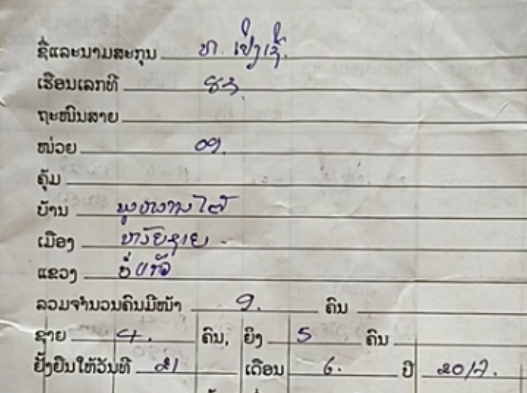 ຊື່ແລະນາມສະກຸນ ທ. ເຢັງເຊັ້.
ເຮືອນເລກທີ 83.
ຖະໜົນສາຍ
ໜ່ວຍ 09.
ຄຸ້ມ
ບ້ານ ພູຫວານໄຕ້
ເມືອງ ຫ້ວຍຊາຍ.
ແຂວງ ບໍ່ແກ້ວ
ລວມຈຳນວນຄົນມີໜ້າ 9. ຄົນ
ຊາຍ 4. ຄົນ, ຍິງ 5 ຄົນ
ຢັ້ງຢືນໃຫ້ວັນທີ 21 ເດືອນ 6. ປີ 2017.